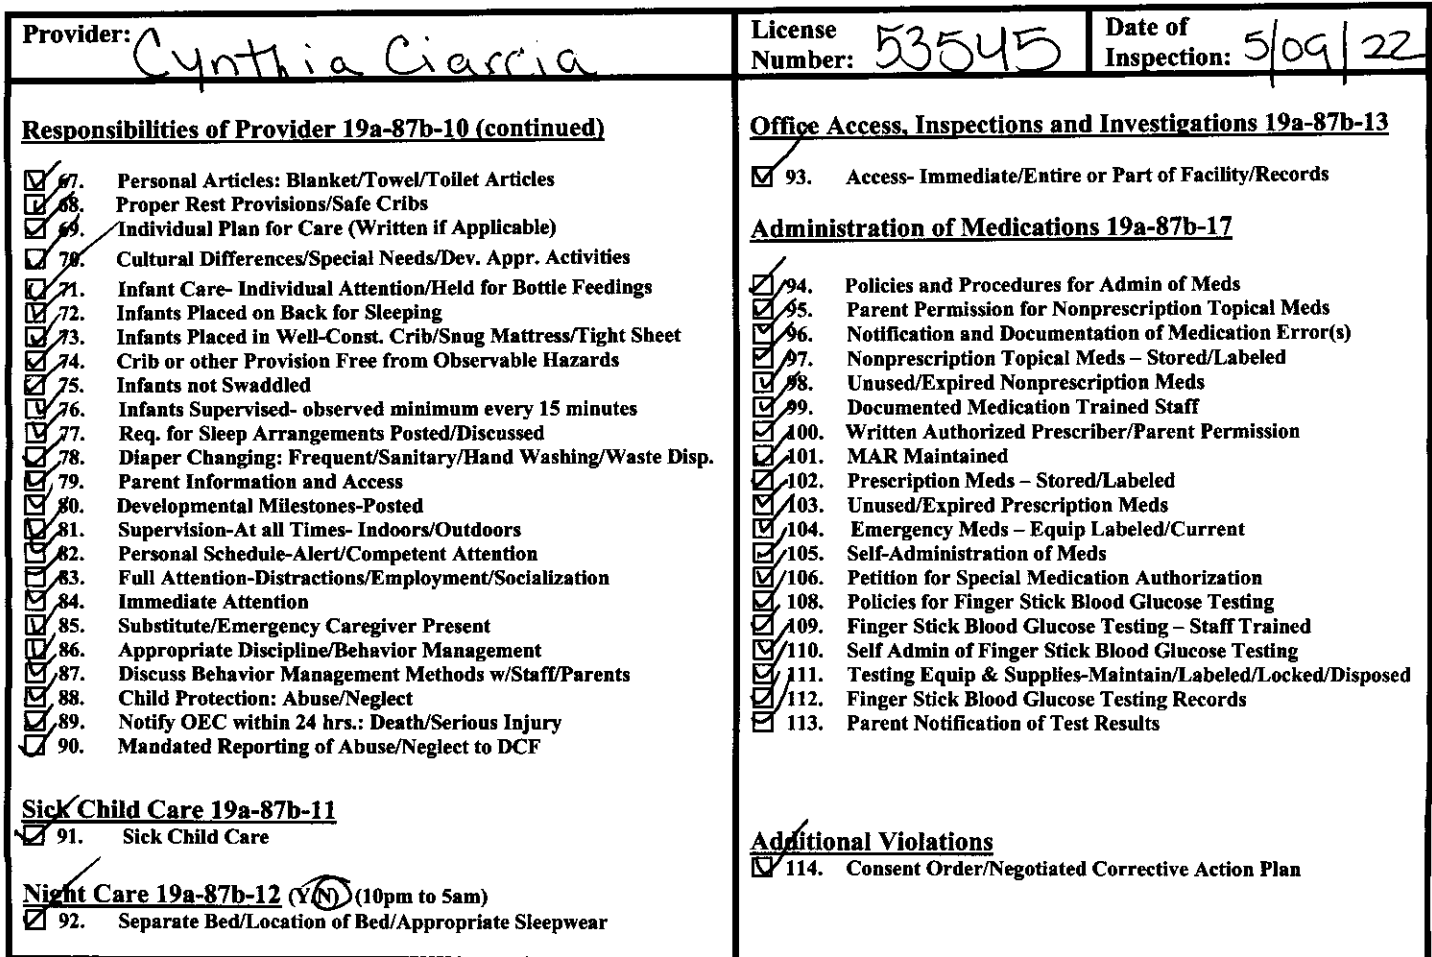 Provider: Cynthia Ciarcia
License Number: 53545
Date of Inspection: 5/09/22
Responsibilities of Provider 19a-87b-10 (continued)
67. Personal Articles: Blanket/Towel/Toilet Articles
68. Proper Rest Provisions/Safe Cribs
69. Individual Plan for Care (Written if Applicable)
70. Cultural Differences/Special Needs/Dev. Appr. Activities
71. Infant Care- Individual Attention/Held for Bottle Feedings
72. Infants Placed on Back for Sleeping
73. Infants Placed in Well-Const. Crib/Snug Mattress/Tight Sheet
74. Crib or other Provision Free from Observable Hazards
75. Infants not Swaddled
76. Infants Supervised- observed minimum every 15 minutes
77. Req. for Sleep Arrangements Posted/Discussed
78. Diaper Changing: Frequent/Sanitary/Hand Washing/Waste Disp.
79. Parent Information and Access
80. Developmental Milestones-Posted
81. Supervision-At all Times- Indoors/Outdoors
82. Personal Schedule-Alert/Competent Attention
83. Full Attention-Distractions/Employment/Socialization
84. Immediate Attention
85. Substitute/Emergency Caregiver Present
86. Appropriate Discipline/Behavior Management
87. Discuss Behavior Management Methods w/Staff/Parents
88. Child Protection: Abuse/Neglect
89. Notify OEC within 24 hrs.: Death/Serious Injury
90. Mandated Reporting of Abuse/Neglect to DCF
Sick Child Care 19a-87b-11
91. Sick Child Care
Night Care 19a-87b-12 (Y/N) (10pm to 5am)
92. Separate Bed/Location of Bed/Appropriate Sleepwear
Office Access, Inspections and Investigations 19a-87b-13
93. Access- Immediate/Entire or Part of Facility/Records
Administration of Medications 19a-87b-17
94. Policies and Procedures for Admin of Meds
95. Parent Permission for Nonprescription Topical Meds
96. Notification and Documentation of Medication Error(s)
97. Nonprescription Topical Meds – Stored/Labeled
98. Unused/Expired Nonprescription Meds
99. Documented Medication Trained Staff
100. Written Authorized Prescriber/Parent Permission
101. MAR Maintained
102. Prescription Meds – Stored/Labeled
103. Unused/Expired Prescription Meds
104. Emergency Meds – Equip Labeled/Current
105. Self-Administration of Meds
106. Petition for Special Medication Authorization
108. Policies for Finger Stick Blood Glucose Testing
109. Finger Stick Blood Glucose Testing – Staff Trained
110. Self Admin of Finger Stick Blood Glucose Testing
111. Testing Equip & Supplies-Maintain/Labeled/Locked/Disposed
112. Finger Stick Blood Glucose Testing Records
113. Parent Notification of Test Results
Additional Violations
114. Consent Order/Negotiated Corrective Action Plan